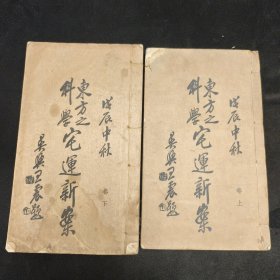 戊辰中秋
東方之
科學
宅運新案
卷上
吳興王震題
戊辰中秋
東方之
科學
宅運新案
卷下
吳興王震題